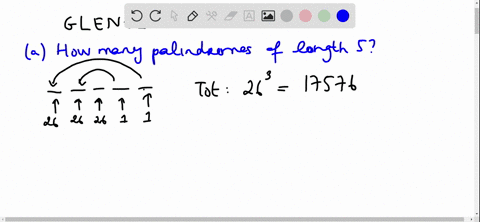 GLEN
(a) How many palindromes of length 5?
Tot: 26³ = 17576
26 26 26 1 1